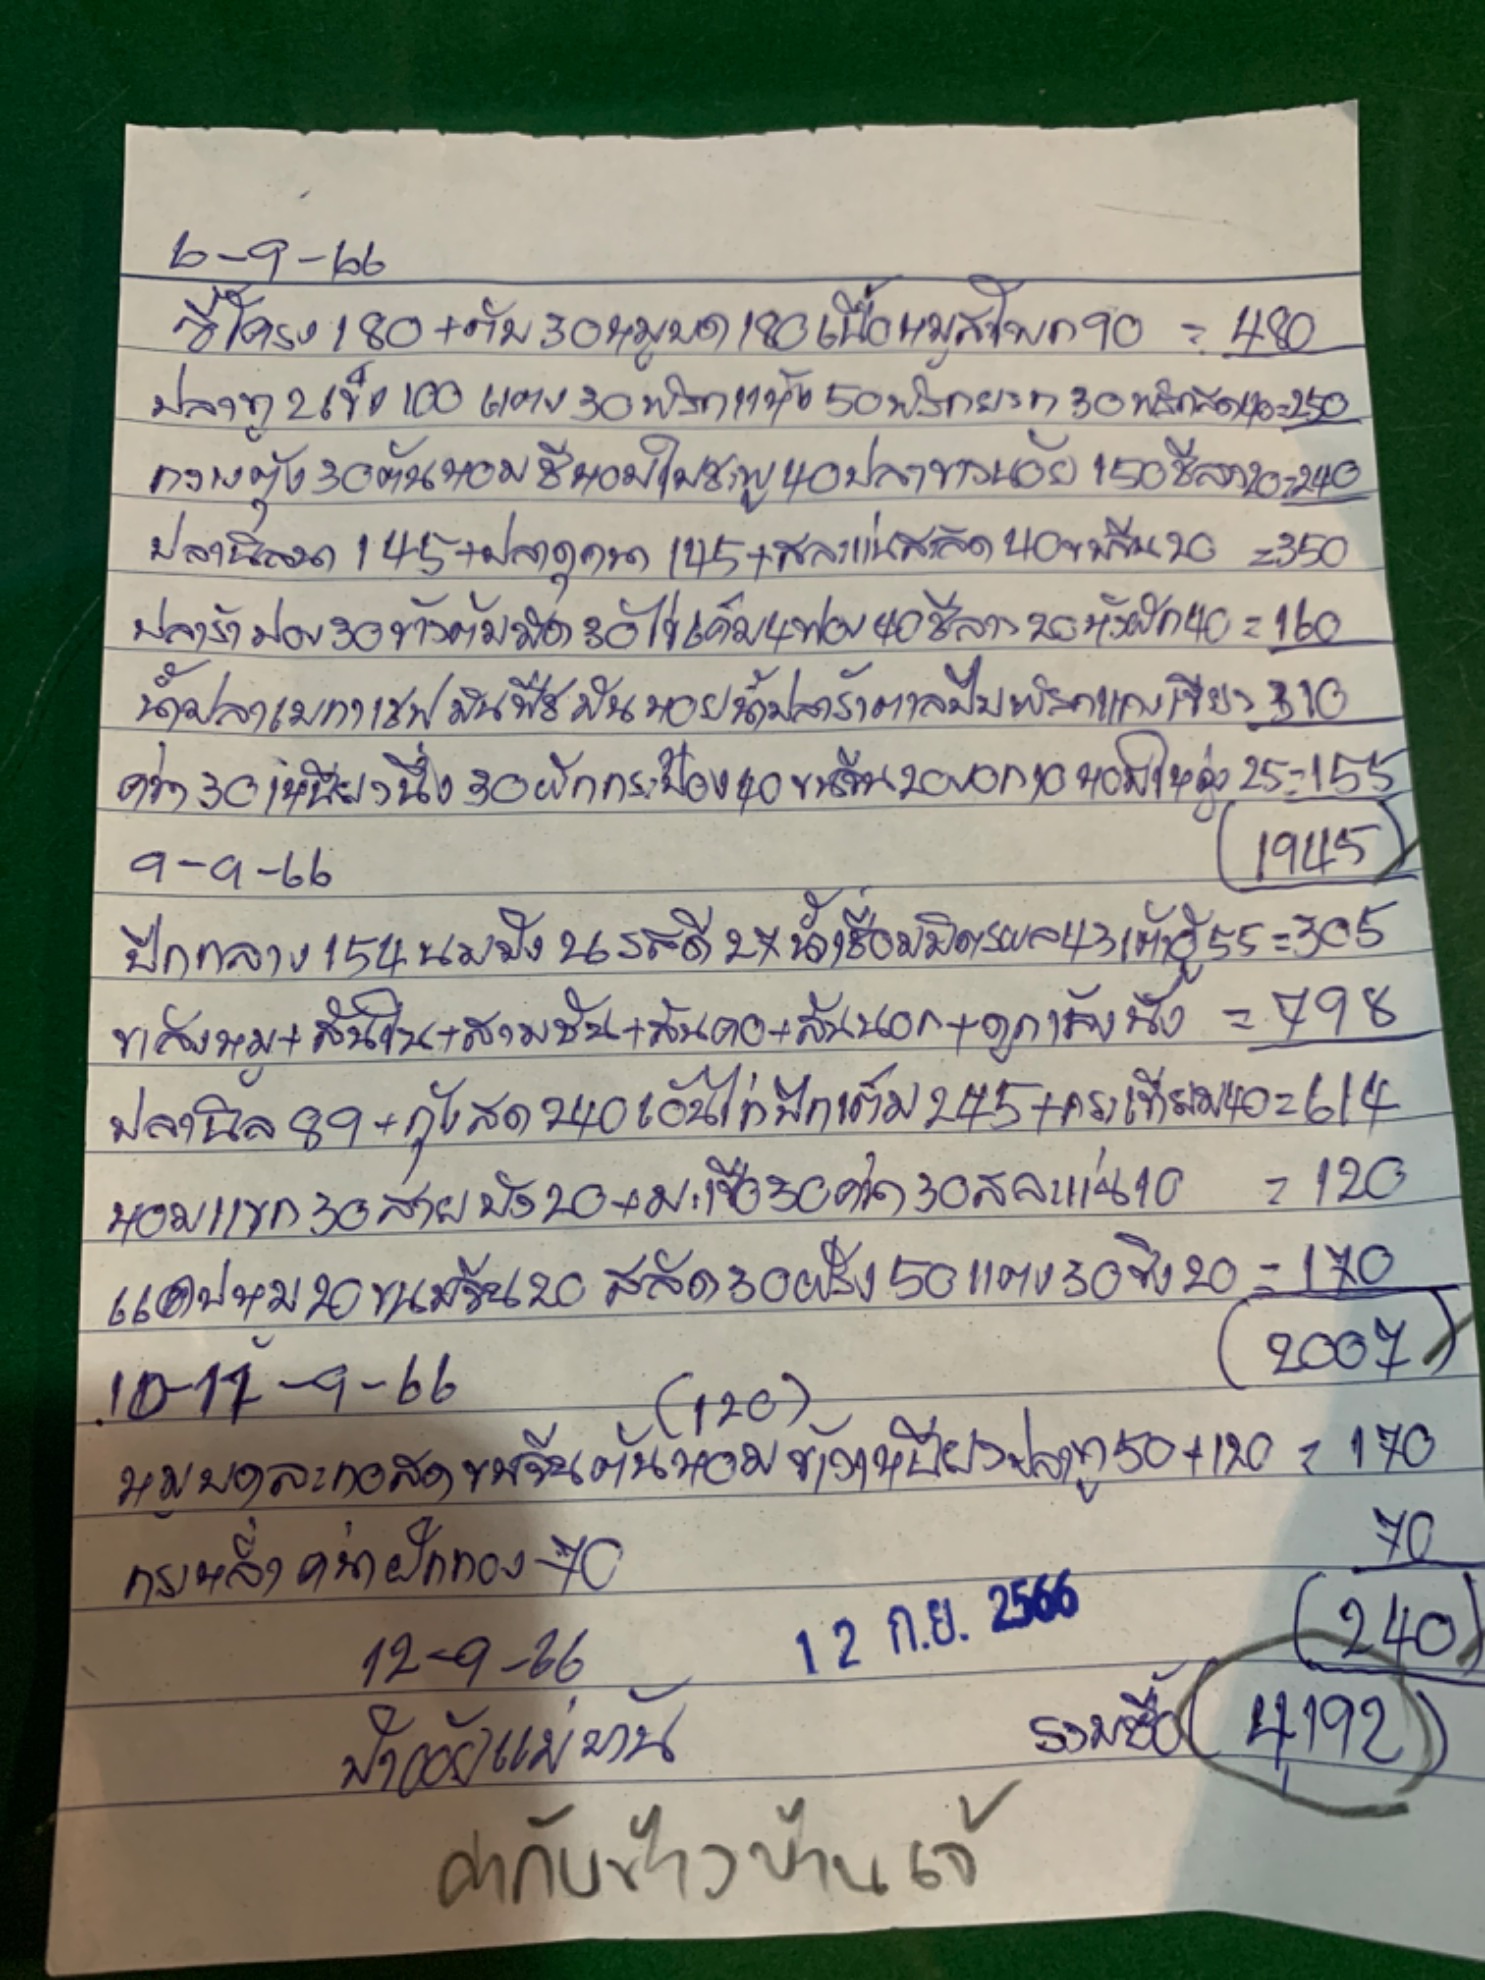 6-9-66
ซี่โครง 180+ตับ 30 หมูบด 180 เนื้อหมูสะโพก 90 = 480
ปลาทู 2 เข่ง 100 แตง 30 พริกแห้ง 50 พริกยวก 30 พริกสด 40=250
กวางตุ้ง 30 ต้นหอมชีหอมใบชะพู 40 ปลาขาวน้อย 150 ชีลาว 20=240
ปลานิลนา 145+ปลาดุกนา 145+สะระแหน่สลัด 40 ขนมจีน 20 =350
ปลาร้าบอง 30 ข้าวต้มมัด 30 ไข่เค็ม 4 ฟอง 40 ชีลาว 20 หัวผัก 40 = 160
น้ำปลาเมกาเชฟ มันหอยน้ำปลาร้าตาลปี๊บพริกแกงเขียว 310
คะน้า 30 เหนียวนึ่ง 30 ผักกระป๋อง 40 ขนมจีน 20 งอก 10 หอมใหญ่ 25=155
(1945)
9-9-66
ปีกกลาง 154 นมข้น 27 น้ำเชื่อมมิตรผล 43 เต้าหู้ 55=305
ขาหลังหมู+สันใน+สามชั้น+สันคอ+สันนอก+ =798
ปลานิล 89+กุ้งสด 240 เอ็นไก่ปีกเต็ม 245+กระเทียม 40=614
หอมแขก 30 สายบัว 20+มะเขือ 30 คะน้า 30 สะระแหน่ 10 = 120
แคบหมู 20 ขนมจีน 20 สลัด 30 ฝรั่ง 50 แตง 30 ขิง 20 = 170
(2007)
10-11-9-66 (120)
หมูบด สด ขนมจีน ต้นหอม ข้าวเหนียว ปลาทู 50+120 = 170
กะหล่ำ คะน้า ฟักทอง-70 70
(240)
12-9-66 12 ก.ย. 2566
ป้าต้อยแม่บ้าน รวมซื้อ (4192)
ค่ากับข้าวบ้านเจ้